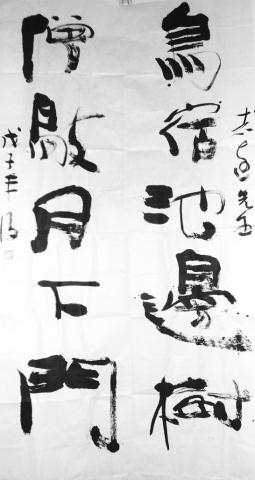 鳥宿池邊樹
僧敲月下門
戊子年